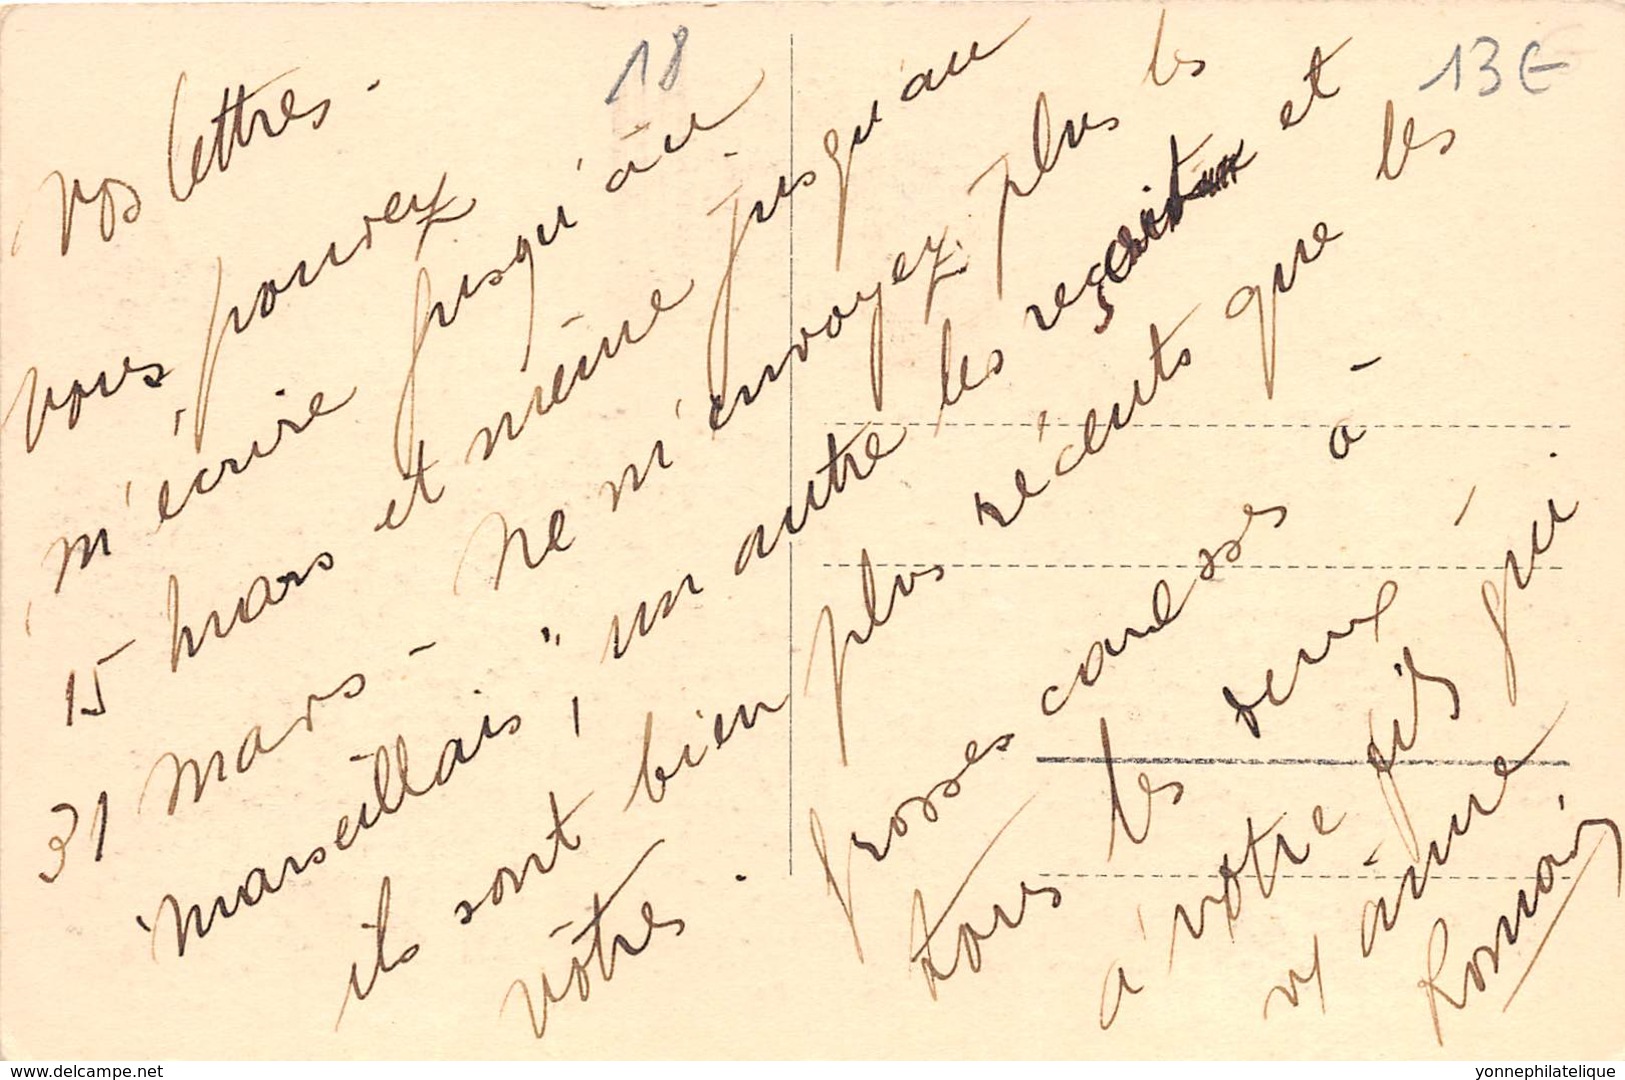 18
13 €
vos lettres.
Vous pourrez
m'écrire jusqu'au
15 mars et même jusqu'au
31 mars - Ne m'envoyez plus les
"Marseillais", un autre les reçoit et
ils sont bien plus récents que les
vôtres.
Grosses caresses à
tous les deux -
à votre fils qui
vs aime
Romain
yonnephilatelique
www.delcampe.net